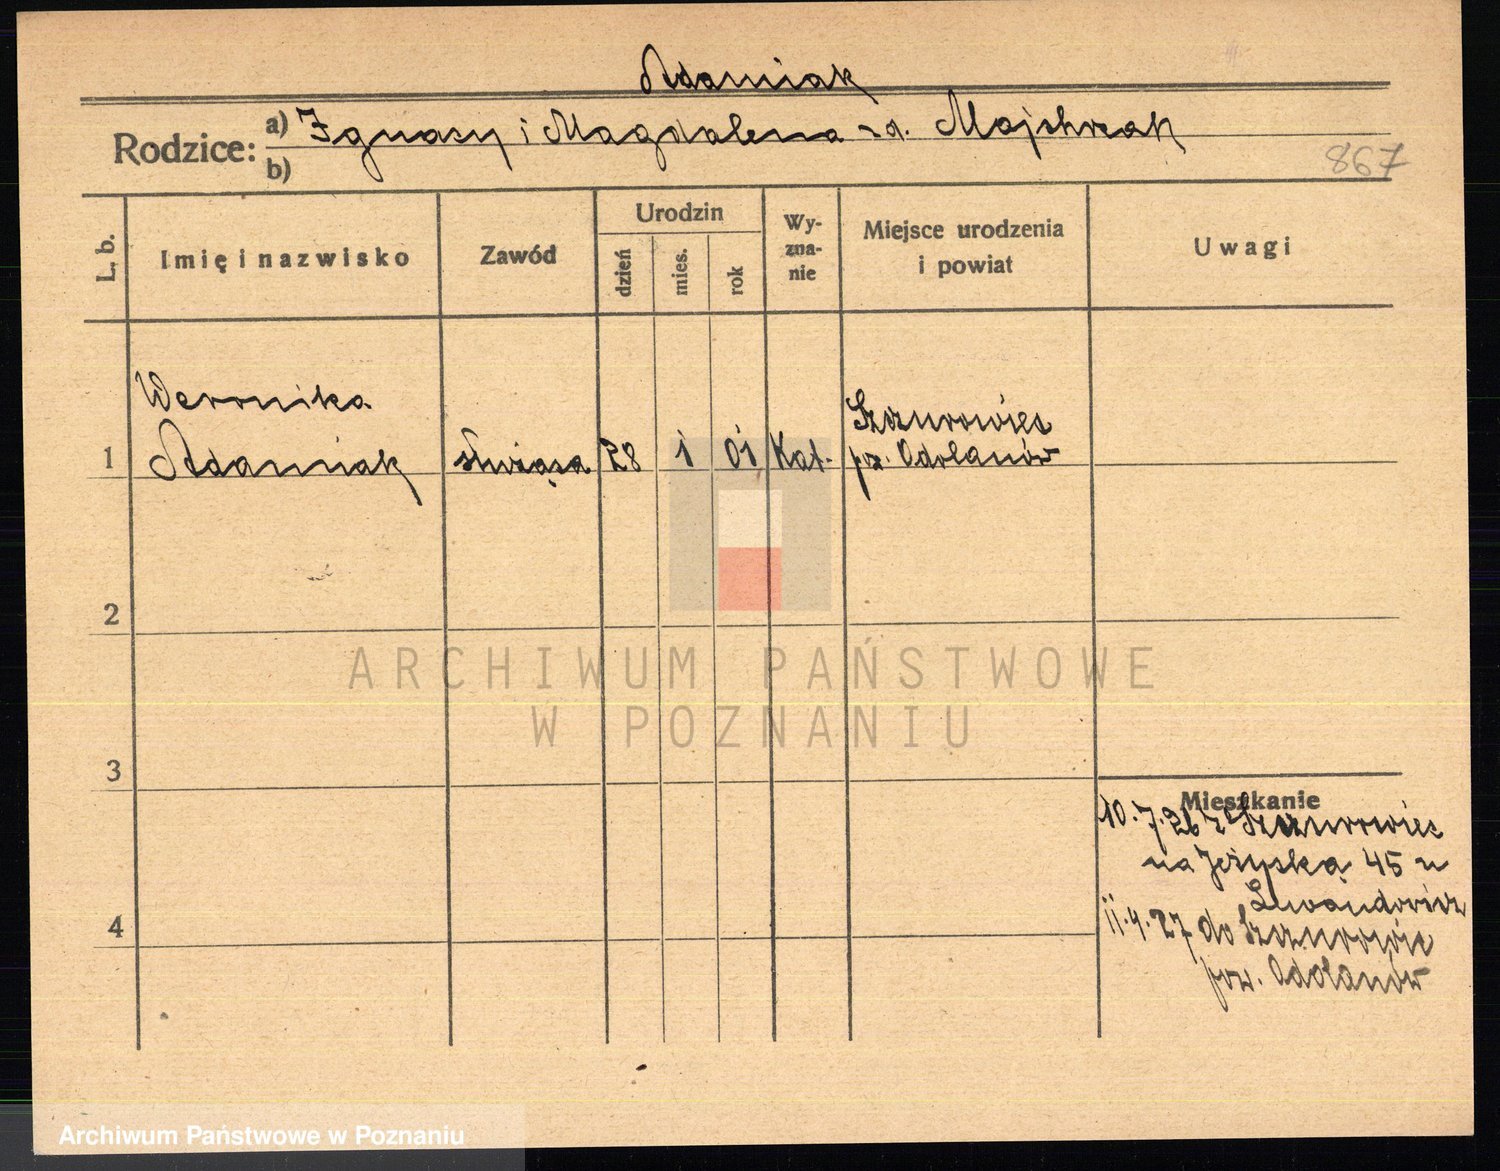 Adamiak
Rodzice: a) Ignacy i Magdalena z d. Majchrzak
b)
867
L. b.
Imię i nazwisko
Zawód
Urodzin
dzień
mies.
rok
Wy-
zna-
nie
Miejsce urodzenia
i powiat
Uwagi
Weronika
Szczurowiec
1 Adamiak służąca 28 1 01 Kat. pow. Odolanów
2
3
4
Mieszkanie
10.7.26 z Szczurowiec
na Jeżycką 45 u
11.4.27 do Szczurowiec
pow. Odolanów
ARCHIWUM PAŃSTWOWE
W POZNANIU
Archiwum Państwowe w Poznaniu